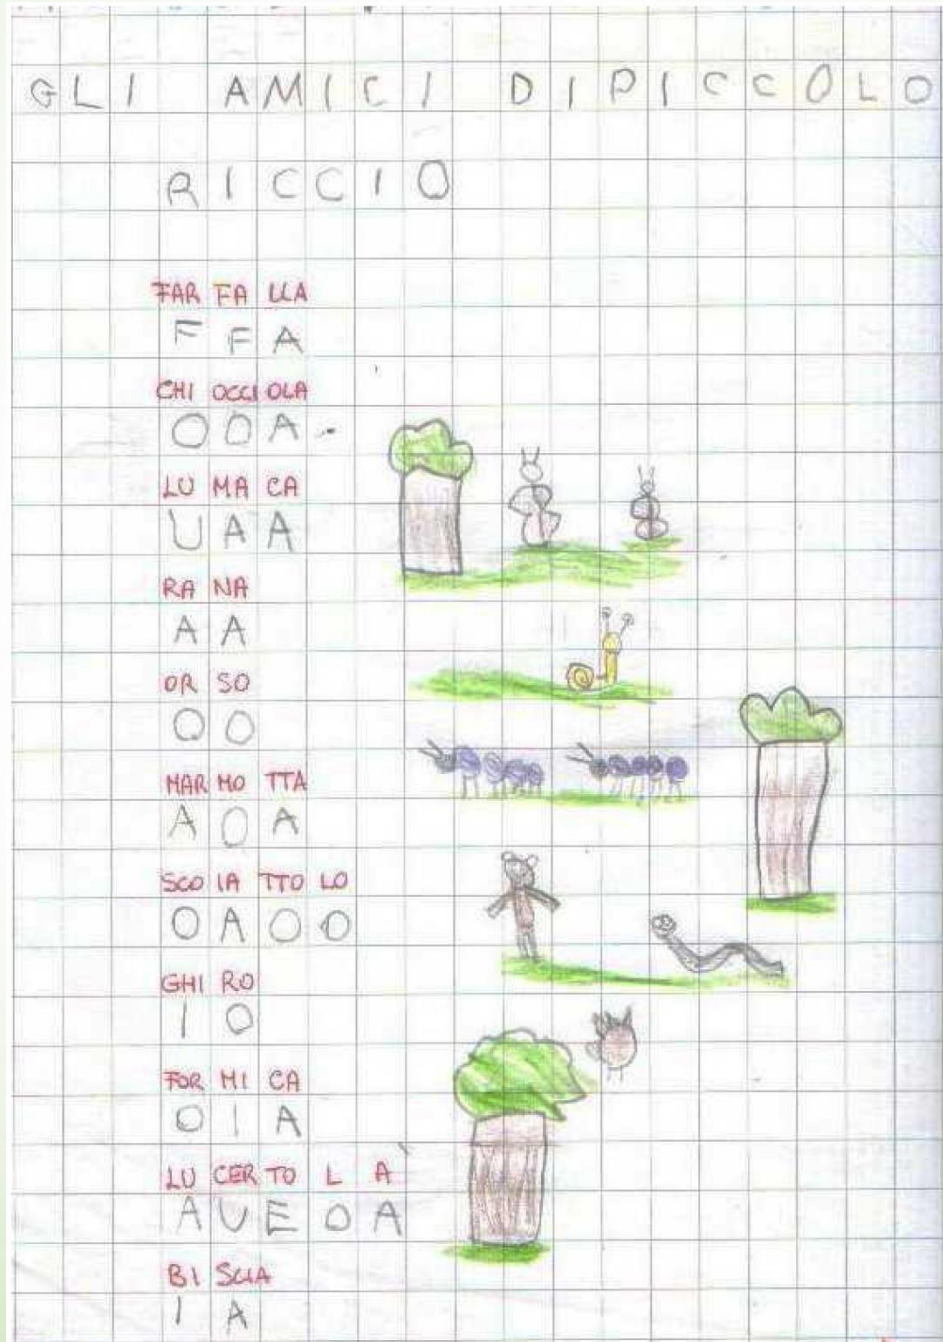 GLI AMICI DIPICCOLO
RICCIO
FAR FA LLA
F F A
CHI OCCI OLA
O O A
LU MA CA
U A A
RA NA
A A
OR SO
O O
MAR MO TTA
A O A
SCO IA TTO LO
O A O O
GHI RO
I O
FOR MI CA
O I A
LU CER TO L A
A U E O A
BI SCIA
I A